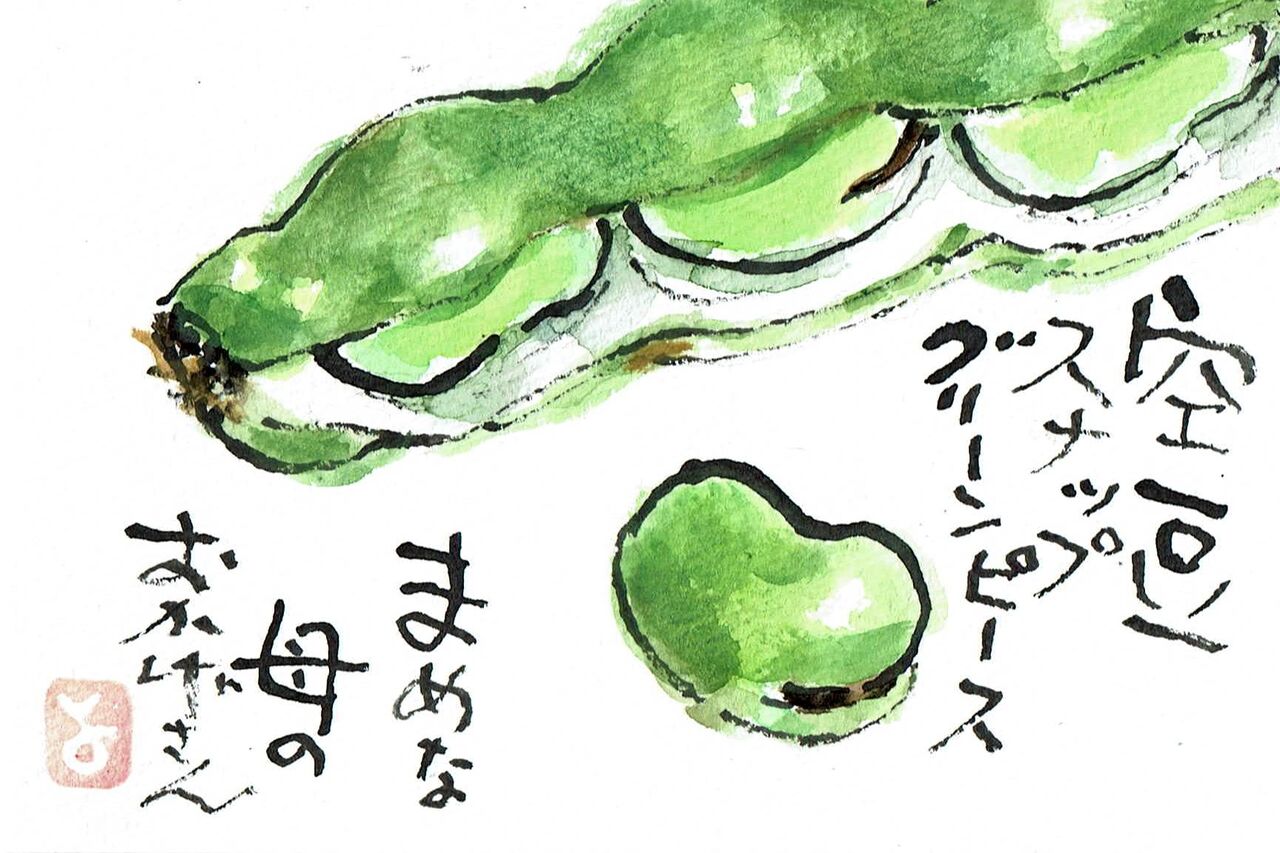 空豆
スナップ
グリーンピース
まめな
母の
おかげさん